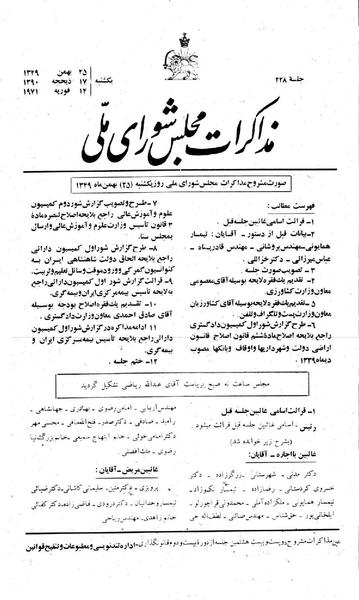 جلسه ۲۲۸
یکشنبه
۲۵ بهمن ۱۳۴۹
۱۷ ذیحجه ۱۳۹۰
۱۴ فوریه ۱۹۷۱
مذاکرات مجلس شورای ملی
صورت مشروح مذاکرات مجلس شورای ملی روز یکشنبه (۲۵) بهمن ماه ۱۳۴۹
فهرست مطالب :
۱- قرائت اسامی غائبین جلسه قبل .
۲- بیانات قبل از دستور - آقایان : تیمسار
همایونی - مهندس پروشانی - مهندس قادرپناه -
عباس میرزائی - دکتر خزائلی .
۳- تصویب صورت جلسه .
۴- تقدیم یک فقره لایحه بوسیله آقای معصومی
معاون وزارت کشاورزی .
۵- تقدیم یک فقره لایحه بوسیله آقای کشاورزیان
معاون وزارت پست و تلگراف و تلفن .
۶- طرح گزارش شور اول کمیسیون دادگستری
راجع بلایحه اصلاح ماده ششم قانون اصلاح قانون
اراضی دولت و شهرداریها و اوقاف و بانکها مصوب
دیماه ۱۳۳۹
۷- طرح و تصویب گزارش شور دوم کمیسیون
علوم و آموزش عالی راجع بلایحه اصلاح تبصره ماده
۳ قانون تأسیس وزارت علوم و آموزش عالی و ارسال
بمجلس سنا .
۸- طرح گزارش شور اول کمیسیون دارائی
راجع بلایحه الحاق دولت شاهنشاهی ایران به
کنوانسیون گمرکی ورود موقت وسائل تعلیم و تربیت .
۹- قرائت گزارش شور اول کمیسیون دارائی راجع
به لایحه تأسیس بیمه مرکزی ایران و بیمه گری .
۱۰- تقدیم یک فقره اصلاح بودجه بوسیله
آقای صادق احمدی معاون وزارت دادگستری .
۱۱- ادامه مذاکره در گزارش شور اول کمیسیون
دارائی راجع بلایحه تأسیس بیمه مرکزی ایران و
بیمه گری .
۱۲- ختم جلسه .
مجلس ساعت نه صبح بریاست آقای عبدالله ریاضی تشکیل گردید
۱- قرائت اسامی غائبین جلسه قبل
رئیس - اسامی غائبین جلسه قبل قرائت میشود .
(بشرح زیر خوانده شد)
غائبین با اجازه - آقایان :
دکتر مدنی - شهرستانی - روگرزاده - دکتر
خسروی کردستانی - رضازاده - تیمسار نکوزاد -
تیمسار همایونی - ملکزاده آملی - محمدولی قراچورلو -
ایلخانی پور - حق شناس - مهندس صائبی - لطف اله حی
مهندس اربابی - امامی رضوی - بهادری - جهانشاهی -
رامبد - صادقی - دکتر صدر - فتح الله مافی - محسنی مهر
دکتر امامی خوئی - خانم ابتهاج سمیعی - خانم بزرگ نیا
رضوی - ملک افضلی .
غائبین مریض - آقایان :
پرویزی - دکتر متین - سلیمانی کاشانی - دکتر ضیائی
تیمسار وحدانیان - دکتر درودی - قاضی زاده - دکتر کفائی
خانم زاهدی - مهندس ریاحی
عین مذاکرات مشروح دویست و بیست و هشتمین جلسه از دوره بیست و دوم قانونگذاری - اداره تندنویسی و مطبوعات و تنقیح قوانین